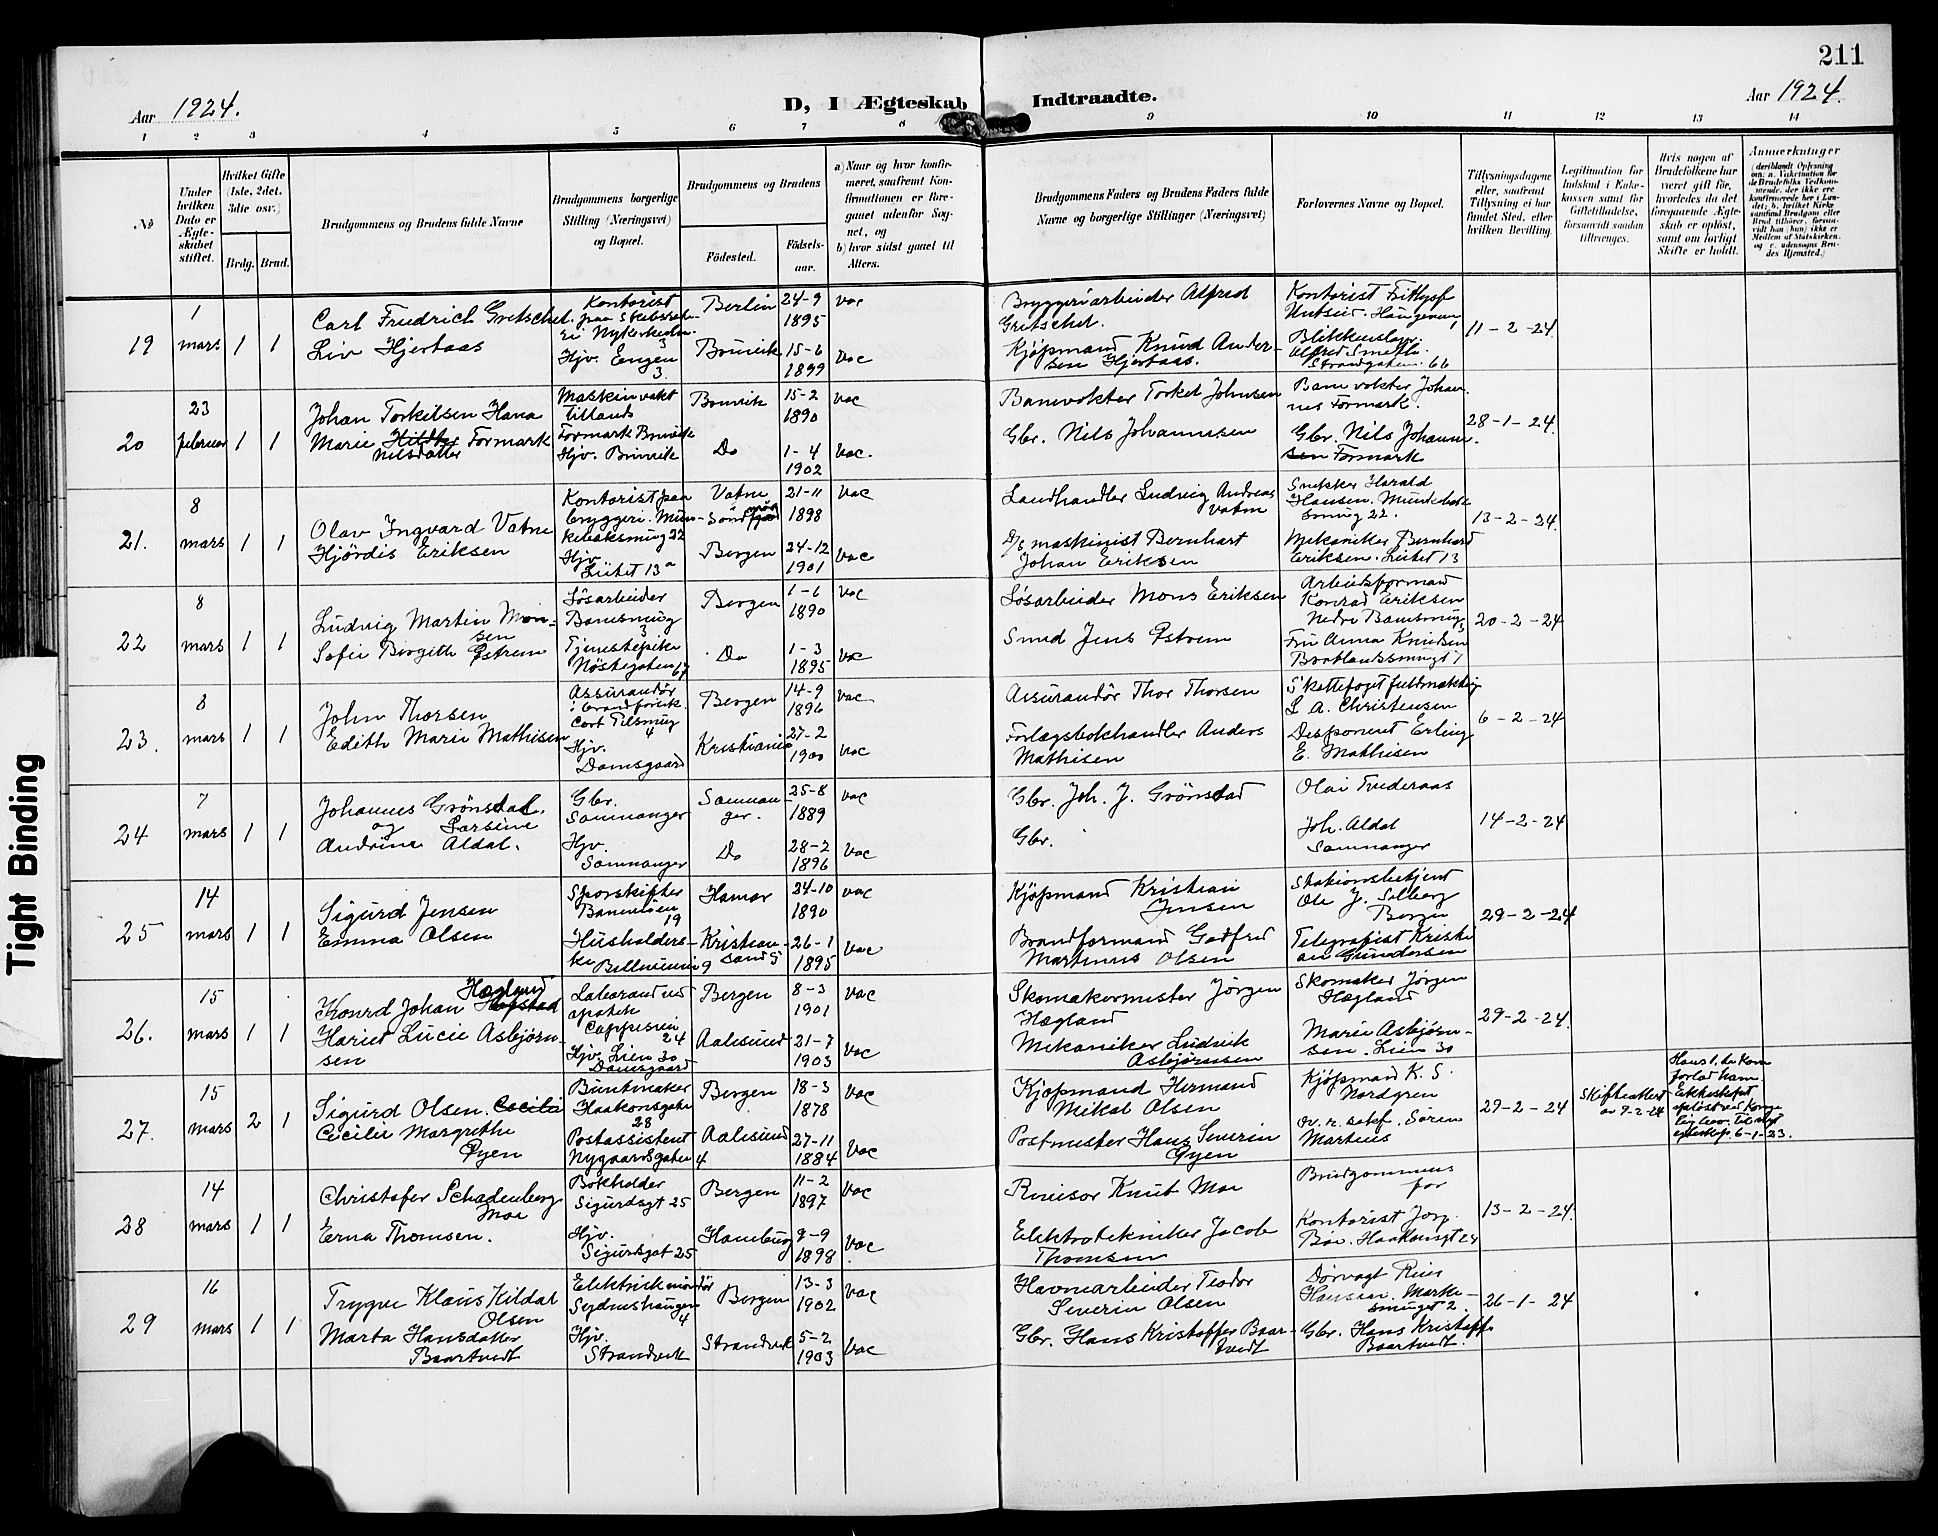 211
Aar 1924.
D, I Ægteskab Indtraadte.
Aar 1924.
1 2 3 4 5 6 7 8 9 10 11 12 13 14
No
Under hvilken Dato er Ægteskabet stiftet.
Hvilket Gifte (1ste, 2det, 3die osv.)
Brdg. Brud.
Brudgommens og Brudens fulde Navne
Brudgommens borgerlige Stilling (Næringsvei) og Bopæl.
Brudgommens og Brudens
Födested.
Födsels-aar.
a) Naar og hvor konfirmeret, saafremt Konfirmationen er foregaaet udenfor Sognet, og
b) hvor sidst gaaet til Alters.
Brudgommens Faders og Brudens Faders fulde Navne og borgerlige Stillinger (Næringsvei)
Forlovernes Navne og Bopæl.
Tillysningsdagene eller, saafremt Tillysning ei har fundet Sted, efter hvilken Bevilling.
Legitimation for Indskud i Enkekassen samt for Giftetilladelse, forsaavidt saadan tiltrænges.
Hvis nogen af Brudefolkene har været gift før, hvorledes da det foregaaende Ægteskab er opløst, samt om lovligt Skifte er holdt.
Anmærkninger
19
1 mars 1 1
Carl Friedrich Gretschel
Liv Hjertaas
Kontorist
Hjv. Engen 3.
Berlin 24-9 1895 vac
Bruvik 15-6 1899 vac
Bryggeriarbeider Alfred Gretschel.
Kjøpmand Knud Andersen Hjertaas.
Kontorist Fritjof
Alfred Smith. Strandgaten 66
11-2-24
20
23 februar 1 1
Johan Torkilsen Hana
Marie Nilsdatter Formark
Maskinvakt
Formark Bruvik
Hjv. Bruvik
Bruvik 15-2 1890 vac
Do 1-4 1902 vac.
Banevokter Torkel Johnsen
Gbr. Nils Johannesen
Banevokter Johannes Formark.
Gbr. Nils Johannesen Formark
28-1-24
21.
8 mars 1 1
Olav Ingvard Vatne
Hjördis Eriksen
Kontorist paa bryggeri. Munkebæksmug 22
Hjv. Lütet 13a
Vatne Söndmör 21-11 1898 vac
Bergen 24-12 1901 vac
Landhandler Ludvig Andreas Vatne
D/s maskinist Bernhart Johan Eriksen
Snekker Harald Hansen. Munkebæksmug 22.
Mekaniker Bernhard Eriksen. Lütet 13
13-2-24
22
8 mars 1 1
Ludvig Martin Monsen
Sofie Bergith Østrem
Løsarbeider
Tjenestepike
Nöstegaten 67
Bergen 1-6 1890 vac
Do 1-3 1895 vac
Løsarbeider Mons Eriksen
Smed Jens Østrem
Arbeidsformand Konrad Eriksen
Fru Anna Knudsen
20-2-24
23.
8 mars 1 1
John Thorsen
Edith Marie Mathisen
Assurandör
Hjv. Damsgaard
Bergen 14-9 1896 vac
Kristiania 27-2 1900 vac
Assurandör Thor Thorsen
Forlagsbokhandler Anders Mathisen
Skattefoged fuldmektig L. A. Christensen
Disponent Erling E. Mathisen
6-2-24
24
7 mars 1 1
Johannes Grönsdal.
og Larsine Andrina Aldal.
Gbr. Samnanger
Hjv. Samnanger
Samnanger. 25-8 1889 vac
Do 28-2 1896 vac
Gbr. Joh. J. Grönsdal
Gbr.
Olai Tvederaas
Joh. Aldal Samnanger
14-2-24
25
14 mars 1 1
Sigurd Jensen
Emma Olsen
Sporskifter 19
Husholderske
Hamar 24-10 1890 vac
Kristiansand S 26-1 1895 vac
Kjøpmand Kristian Jensen
Brandformand Godfred Martinus Olsen
Stationsbetjent Ole J. Selberg Bergen
Telegrafist Kristian Gundersen
29-2-24
26.
15 mars 1 1
Konrd Johan Hægland
Hariet Lucie Asbjørnsen
Hjv. Lien 30 Damsgaard
Bergen 8-3 1901 vac
Aalesund 21-7 1903 vac
Skomakermester Jörgen Hægland
Mekaniker Ludvik Asbjørnsen
Skomaker Jörgen Hægland
Marie Asbjørnsen. Lien 30
29-2-24
27.
15 mars 2 1
Sigurd Olsen.
Cecilie Margrethe Øyen
Buntmaker Haakonsgate 28
Postassistent Nygaardsgaten 4
Bergen 18-3 1878 vac
Aalesund 27-11 1884 vac
Kjøpmand Hermand Mikal Olsen
Postmester Hans Severin Øyen
Kjöpmand K. S. Nordgren
o.r. sakf. Sören Martens
29-2-24
Skifteattest av 9-2-24
Hans 1. hu kone forlod ham. Ekteskapet opløst ved
6-1-23.
28
14 mars 1 1
Christofer Schadenberg Moe
Erna Thomsen.
Bokholder Sigurdsgt 25
Hjv. Sigurdsgt 25
Bergen 11-2 1897 vac
Hamburg 9-9 1898 vac
Revisor Knut Moe
Elektrotekniker Jacob Thomsen
Brudgommens far
Kontorist Jörg. Böe. Haakonsgt 24
13-2-24
29
16 mars 1 1
Trygve Klaus Kildal Olsen
Marta Hansdatter Baartvedt
Elektrisk montör Sydneshaugen 4
Hjv. Strandvik
Bergen 13-3 1902 vac
Strandvik 5-2 1903 vac
Havnearbeider Teodor Severin Olsen
Gbr. Hans Kristoffer Baartvedt
Gbr. Hans Kristoffer Baartvedt.
26-1-24
Tight Binding